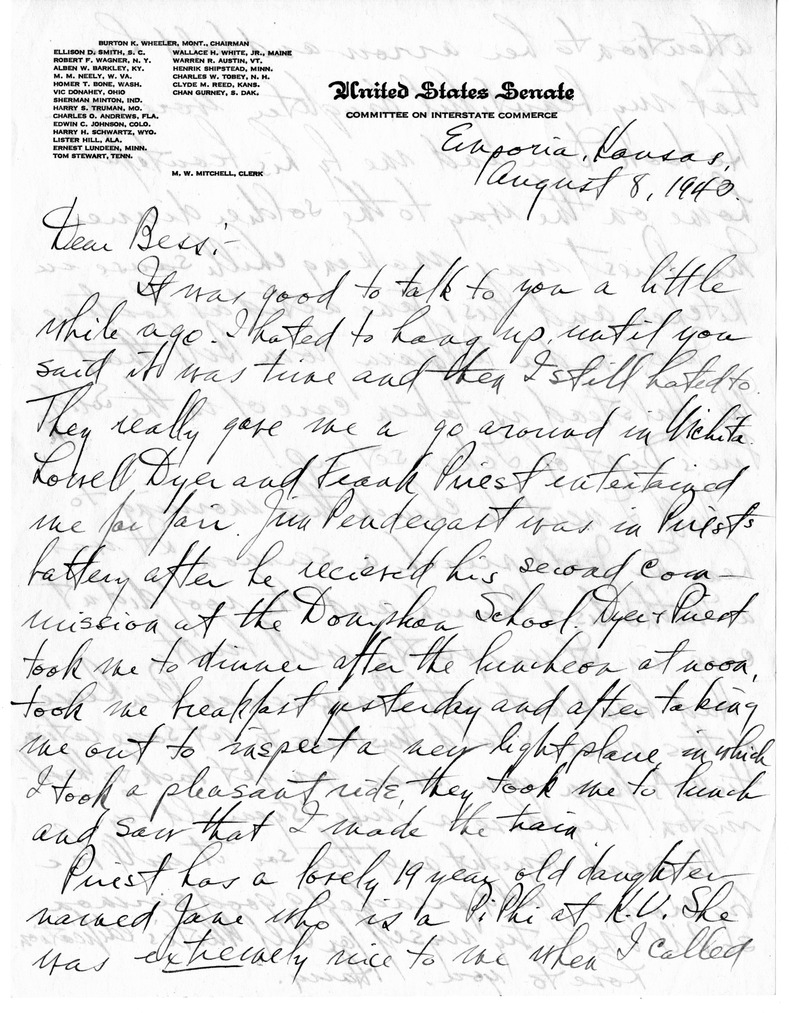 BURTON K. WHEELER, MONT., CHAIRMAN
ELLISON D. SMITH, S. C.
ROBERT F. WAGNER, N. Y.
ALBEN W. BARKLEY, KY.
M. M. NEELY, W. VA.
HOMER T. BONE, WASH.
VIC DONAHEY, OHIO
SHERMAN MINTON, IND.
HARRY S. TRUMAN, MO.
CHARLES O. ANDREWS, FLA.
EDWIN C. JOHNSON, COLO.
HARRY H. SCHWARTZ, WYO.
LISTER HILL, ALA.
ERNEST LUNDEEN, MINN.
TOM STEWART, TENN.
WALLACE H. WHITE, JR., MAINE
WARREN R. AUSTIN, VT.
HENRIK SHIPSTEAD, MINN.
CHARLES W. TOBEY, N. H.
CLYDE M. REED, KANS.
CHAN GURNEY, S. DAK.
M. W. MITCHELL, CLERK
United States Senate
COMMITTEE ON INTERSTATE COMMERCE
Emporia, Kansas,
August 8, 1940.
Dear Bess:-
It was good to talk to you a little
while ago. I hated to hang up, until you
said it was time and then I still hated to.
They really gave me a go around in Wichita.
Lowell Dyer and Frank Priest entertained
me for fair. Jim Pendergast was in Priest's
battery after he recieved his second com-
mission at the Doniphan School. Dyer & Priest
took me to dinner after the luncheon at noon,
took me breakfast yesterday and after taking
me out to inspect a new light plane, in which
I took a pleasant ride, they took me to lunch
and saw that I made the train
Priest has a lovely 19 year old daughter
named Jane who is a Pi Phi at K.U. She
was extremely nice to me when I called